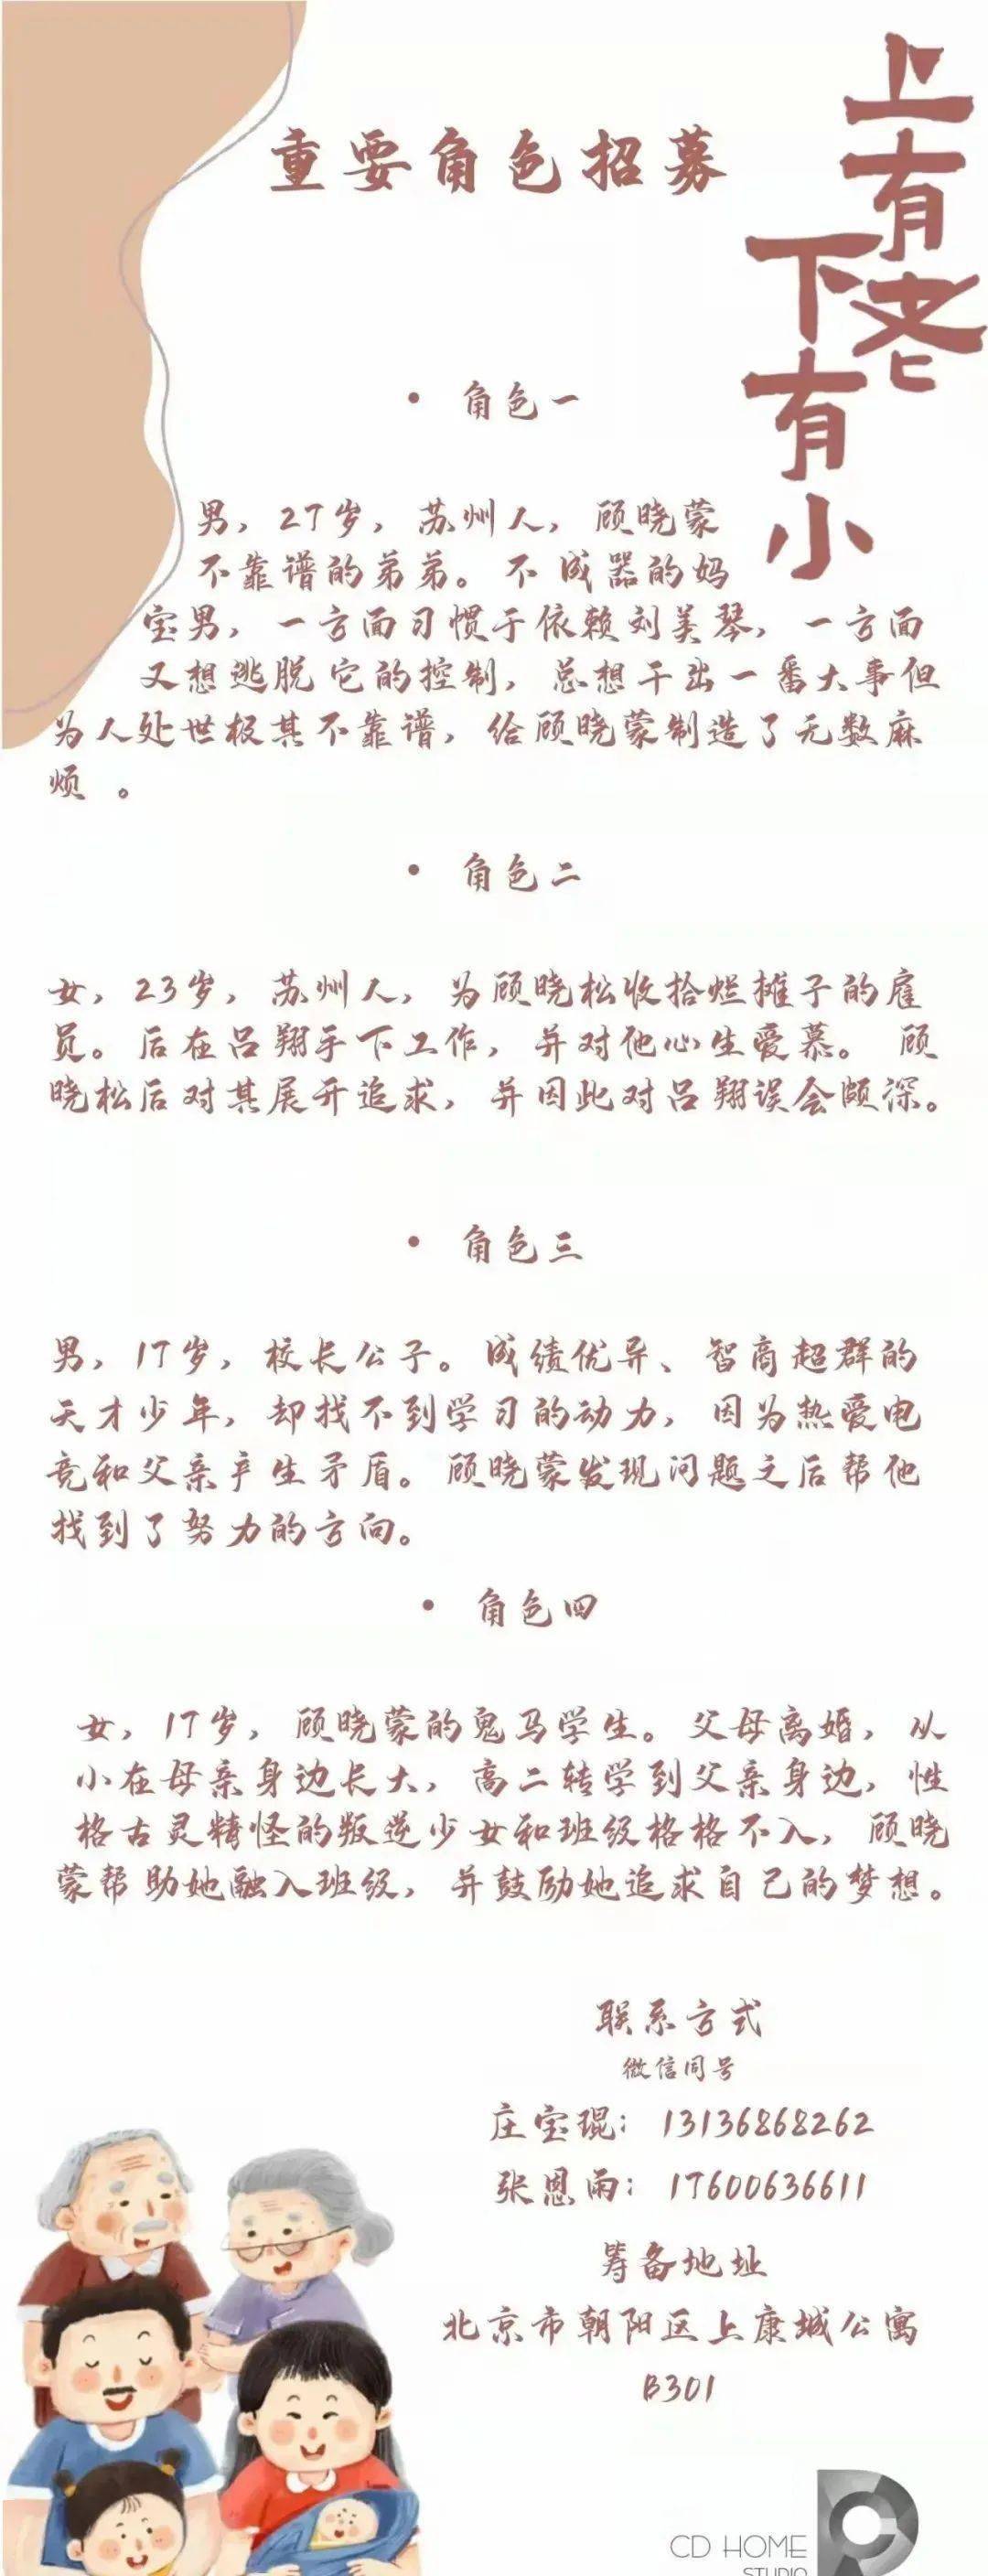 上有老
下有小
重要角色招募
• 角色一
男，27岁，苏州人，顾晓蒙
不靠谱的弟弟。不成器的妈
宝男，一方面习惯于依赖刘美琴，一方面
又想逃脱它的控制，总想干出一番大事但
为人处世极其不靠谱，给顾晓蒙制造了无数麻
烦 。
• 角色二
女，23岁，苏州人，为顾晓松收拾烂摊子的雇
员。后在吕翔手下工作，并对他心生爱慕。 顾
晓松后对其展开追求，并因此对吕翔误会颇深。
• 角色三
男，17岁，校长公子。成绩优异、智商超群的
天才少年，却找不到学习的动力，因为热爱电
竞和父亲产生矛盾。顾晓蒙发现问题之后帮他
找到了努力的方向。
• 角色四
女，17岁，顾晓蒙的鬼马学生。父母离婚，从
小在母亲身边长大，高二转学到父亲身边，性
格古灵精怪的叛逆少女和班级格格不入，顾晓
蒙帮助她融入班级，并鼓励她追求自己的梦想。
联系方式
微信同号
庄宝琨：13136868262
张恩雨：17600636611
筹备地址
北京市朝阳区上康城公寓
B301
CD HOME
STUDIO